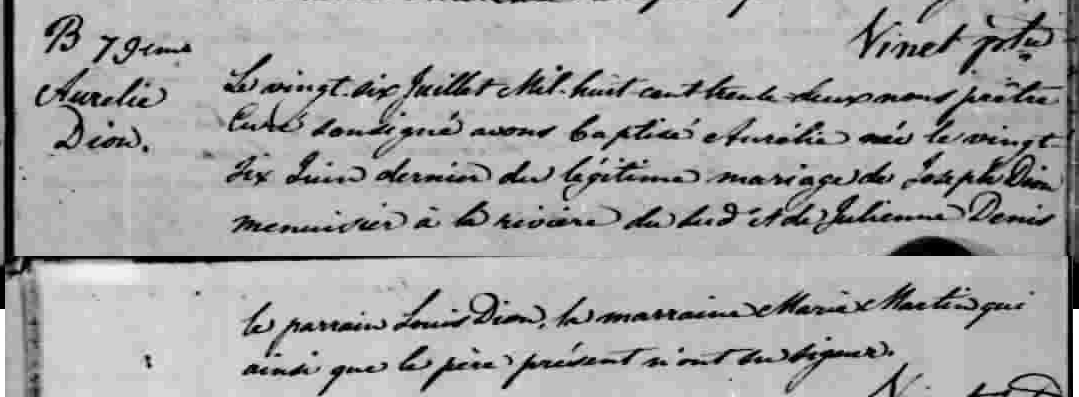 Vinet ptre
B 79eme
Aurelie
Dion.
Le vingt-six Juillet Mil-huit cent trente-deux nous prêtre
Curé sousigné avons baptisé Aurélie née le vingt
six Juin dernier du légitime mariage de Joseph Dion
menuisier à la rivière du Sud et de Julienne Denis
le parrain Louis Dion, la marraine Marie Martin qui
ainsi que le père présent n'ont su signer.